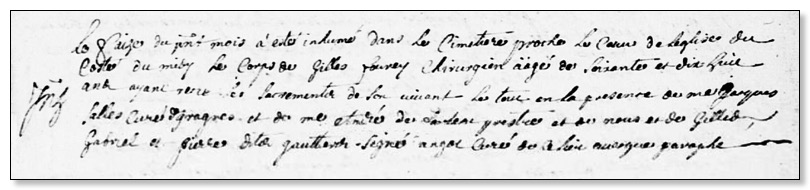 Le saize du p̃nt mois a esté inhumé dans le Cimetiere proche le Cœur de Leglise du
Costé du midy le Corps de Gilles fourey Chirurgien aagé de soixante et dix huit
ans ayant receu les sacrements de son vivant le tout en la presence de me Jacques
salles Curé et de me de prestre et de nous et de Gilles
Gabriel et pierre dits gautier signé angot Curé de ce lieu avecque paraphe